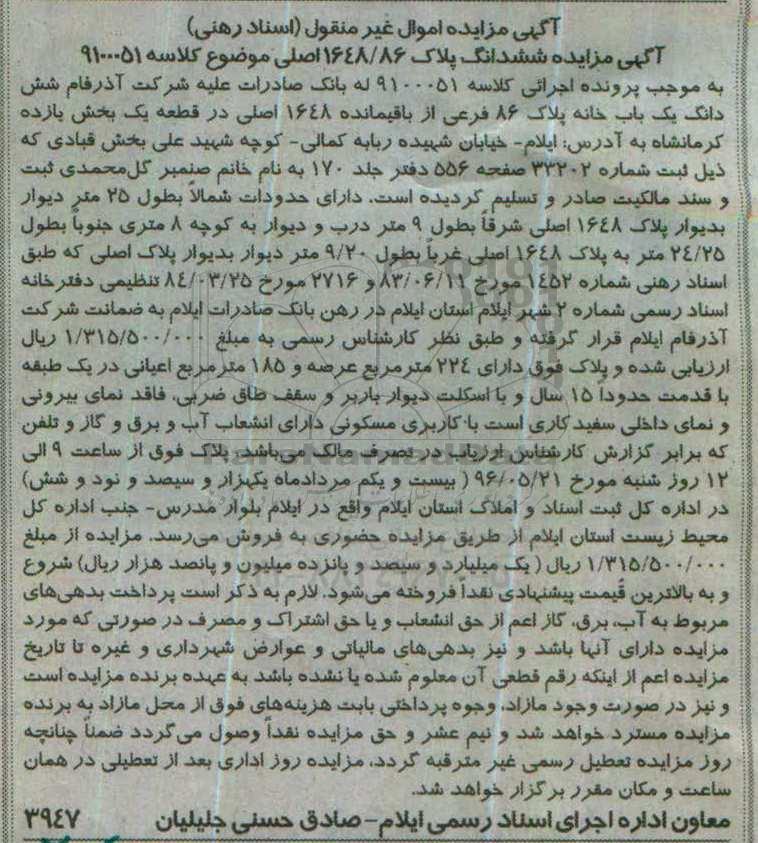 آگهی مزایده اموال غیر منقول (اسناد رهنی)
آگهی مزایده ششدانگ پلاک ۱۶۴۸/۸۶ اصلی موضوع کلاسه ۹۱۰۰۰۵۱
به موجب پرونده اجرائی کلاسه ۹۱۰۰۰۵۱ له بانک صادرات علیه شرکت آذرفام شش
دانگ یک باب خانه پلاک ۸۶ فرعی از باقیمانده ۱۶۴۸ اصلی در قطعه یک بخش یازده
کرمانشاه به آدرس: ایلام- خیابان شهیده ربابه کمالی- کوچه شهید علی بخش قبادی که
ذیل ثبت شماره ۳۳۲۰۲ صفحه ۵۵۶ دفتر جلد ۱۷۰ به نام خانم صنمبر گل‌محمدی ثبت
و سند مالکیت صادر و تسلیم گردیده است. دارای حدودات شمالاً بطول ۲۵ متر دیوار
بدیوار پلاک ۱۶۴۸ اصلی شرقاً بطول ۹ متر درب و دیوار به کوچه ۸ متری جنوباً بطول
۲۴/۲۵ متر به پلاک ۱۶۴۸ اصلی غرباً بطول ۹/۲۰ متر دیوار بدیوار پلاک اصلی که طبق
اسناد رهنی شماره ۱۴۵۲ مورخ ۸۳/۰۶/۱۱ و ۲۷۱۶ مورخ ۸۴/۰۳/۲۵ تنظیمی دفترخانه
اسناد رسمی شماره ۲ شهر ایلام استان ایلام در رهن بانک صادرات ایلام به ضمانت شرکت
آذرفام ایلام قرار گرفته و طبق نظر کارشناس رسمی به مبلغ ۱/۳۱۵/۵۰۰/۰۰۰ ریال
ارزیابی شده و پلاک فوق دارای ۲۲۴ مترمربع عرصه و ۱۸۵ مترمربع اعیانی در یک طبقه
با قدمت حدوداً ۱۵ سال و با اسکلت دیوار باربر و سقف طاق ضربی، فاقد نمای بیرونی
و نمای داخلی سفیدکاری است با کاربری مسکونی دارای انشعاب آب و برق و گاز و تلفن
که برابر گزارش کارشناس ارزیاب در تصرف مالک می‌باشد. پلاک فوق از ساعت ۹ الی
۱۲ روز شنبه مورخ ۹۶/۰۵/۲۱ ( بیست و یکم مردادماه یکهزار و سیصد و نود و شش)
در اداره کل ثبت اسناد و املاک استان ایلام واقع در ایلام بلوار مدرس- جنب اداره کل
محیط زیست استان ایلام از طریق مزایده حضوری به فروش می‌رسد. مزایده از مبلغ
۱/۳۱۵/۵۰۰/۰۰۰ ریال ( یک میلیارد و سیصد و پانزده میلیون و پانصد هزار ریال) شروع
و به بالاترین قیمت پیشنهادی نقداً فروخته می‌شود. لازم به ذکر است پرداخت بدهی‌های
مربوط به آب، برق، گاز اعم از حق انشعاب و یا حق اشتراک و مصرف در صورتی که مورد
مزایده دارای آنها باشد و نیز بدهی‌های مالیاتی و عوارض شهرداری و غیره تا تاریخ
مزایده اعم از اینکه رقم قطعی آن معلوم شده یا نشده باشد به عهده برنده مزایده است
و نیز در صورت وجود مازاد، وجوه پرداختی بابت هزینه‌های فوق از محل مازاد به برنده
مزایده مسترد خواهد شد و نیم عشر و حق مزایده نقداً وصول می‌گردد ضمناً چنانچه
روز مزایده تعطیل رسمی غیر مترقبه گردد، مزایده روز اداری بعد از تعطیلی در همان
ساعت و مکان مقرر برگزار خواهد شد.
معاون اداره اجرای اسناد رسمی ایلام- صادق حسنی جلیلیان ۳۹۴۷